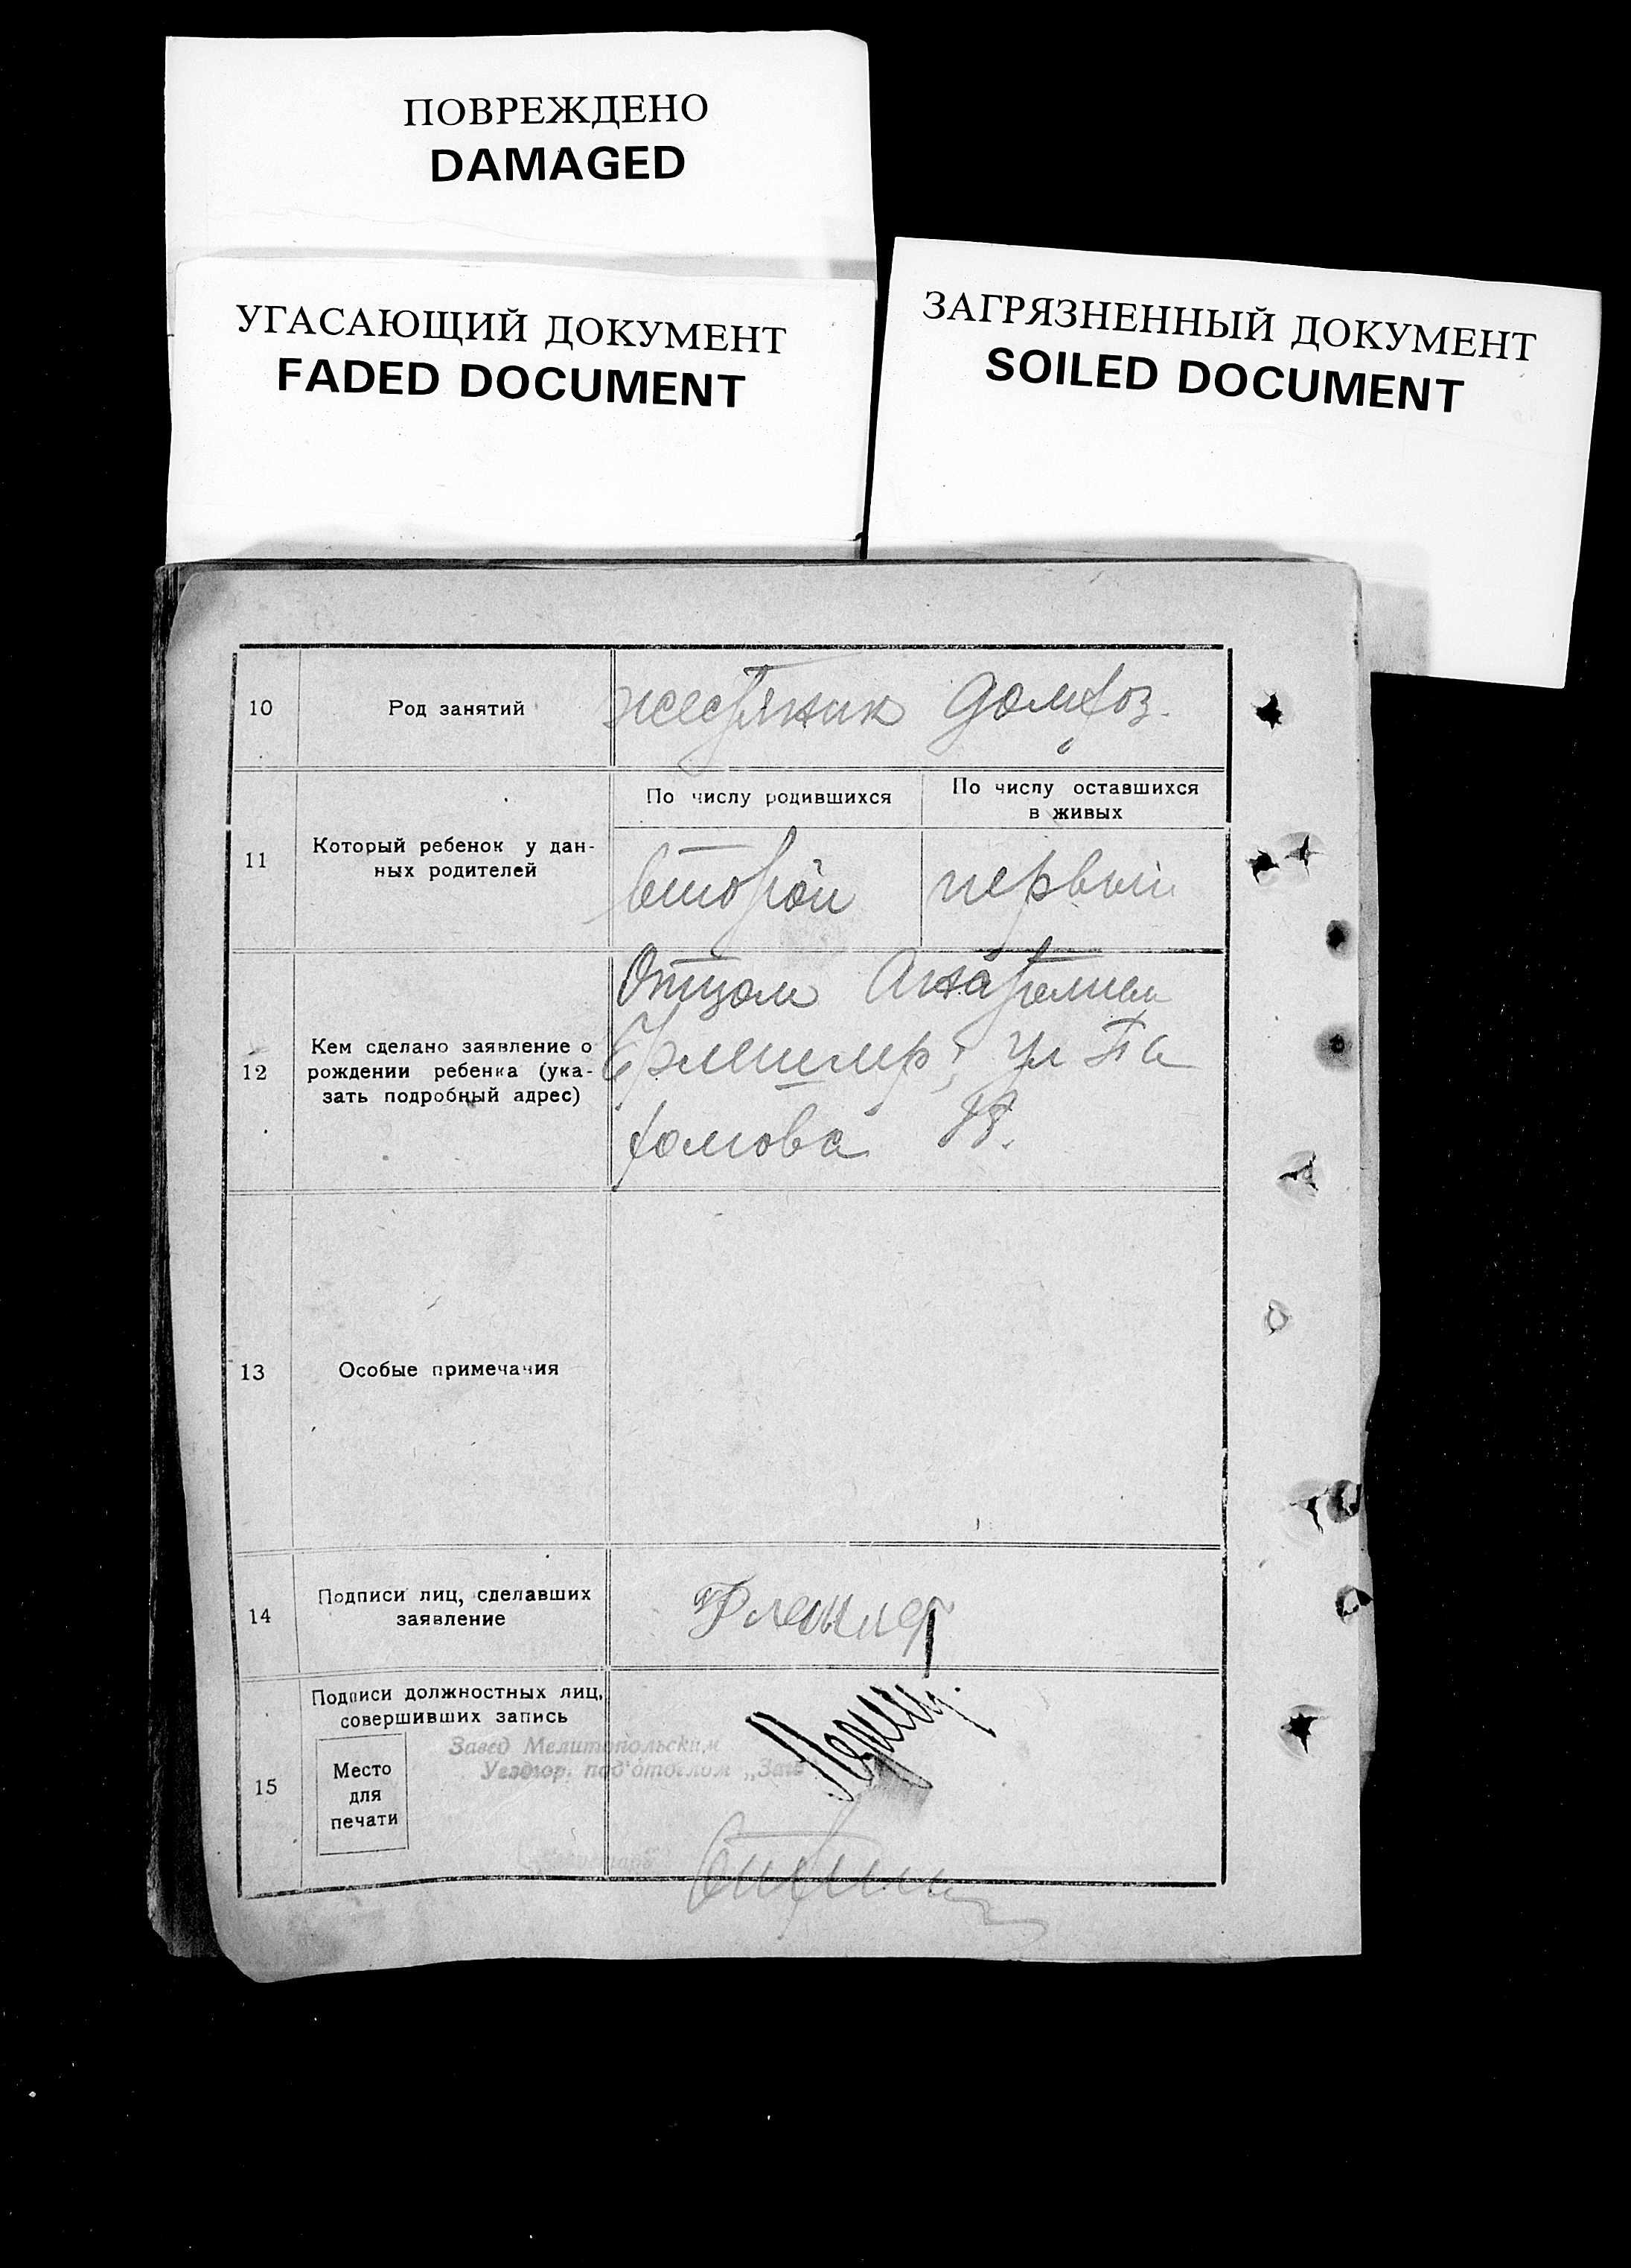 ПОВРЕЖДЕНО
DAMAGED
УГАСАЮЩИЙ ДОКУМЕНТ
FADED DOCUMENT
ЗАГРЯЗНЕННЫЙ ДОКУМЕНТ
SOILED DOCUMENT
10
Род занятий
жестяник домхоз.
11
Который ребенок у дан-
ных родителей
По числу родившихся
второй
По числу оставшихся
в живых
первый
12
Кем сделано заявление о
рождении ребенка (ука-
зать подробный адрес)
Отцом
ул Па
хомова
13
Особые примечания
14
Подписи лиц, сделавших
заявление
15
Подписи должностных лиц,
совершивших запись
Место
для
печати
Завед Мелитопольским
под'отделом „Загс